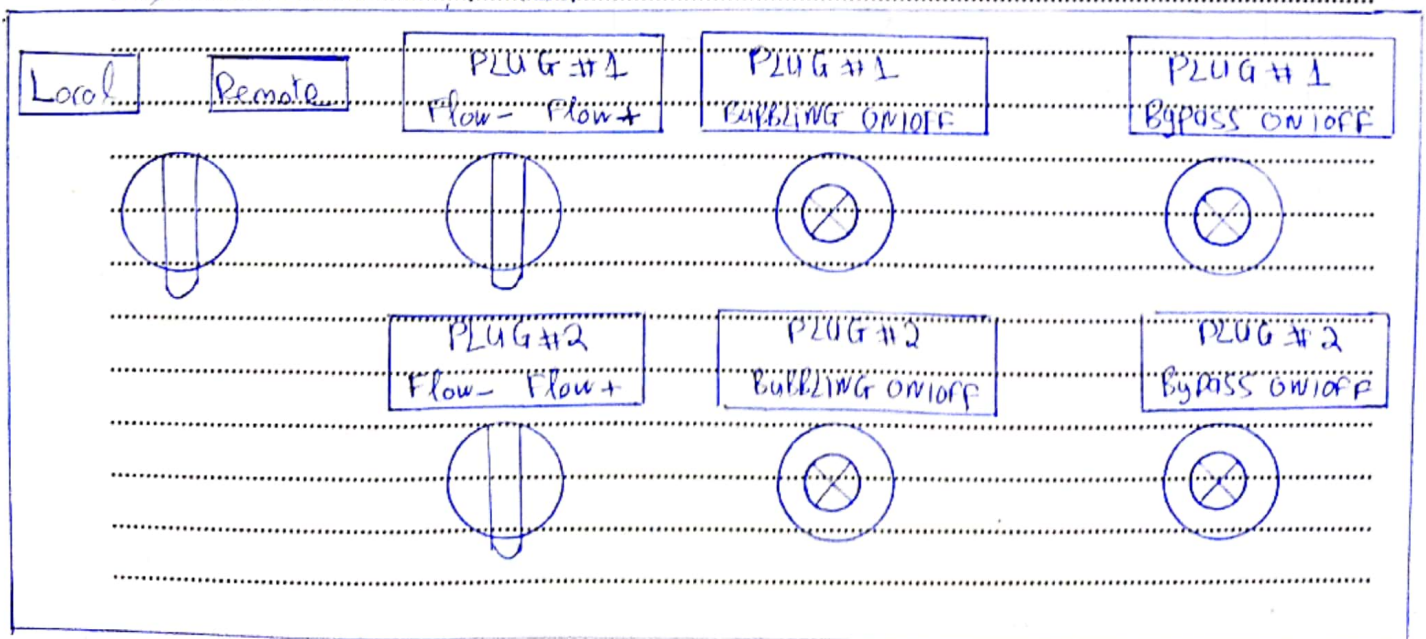 Local
Remote
PLUG #1
Flow- Flow+
PLUG #1
BUBBLING ON/OFF
PLUG #1
Bypass ON/OFF
PLUG #2
Flow- Flow+
PLUG #2
BUBBLING ON/OFF
PLUG #2
Bypass ON/OFF